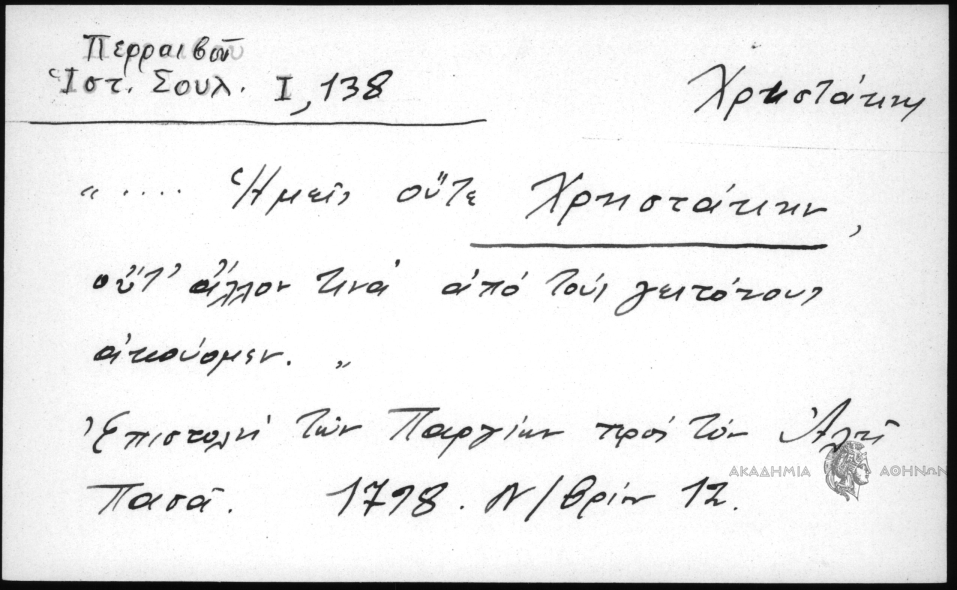 Περραιβοῦ
Ἱστ. Σουλ. I, 138
Χρηστάκης
" .... Ἡμεῖς οὔτε Χρηστάκην,
οὔτ' ἄλλον τινά ἀπό τούς γειτόνους
ἀκούομεν. "
Ἐπιστολή τῶν Παργίων πρός τόν Ἀλῆ
Πασᾶ. 1798. Ν/βρίου 12.
ΑΚΑΔΗΜΙΑ ΑΘΗΝΩΝ